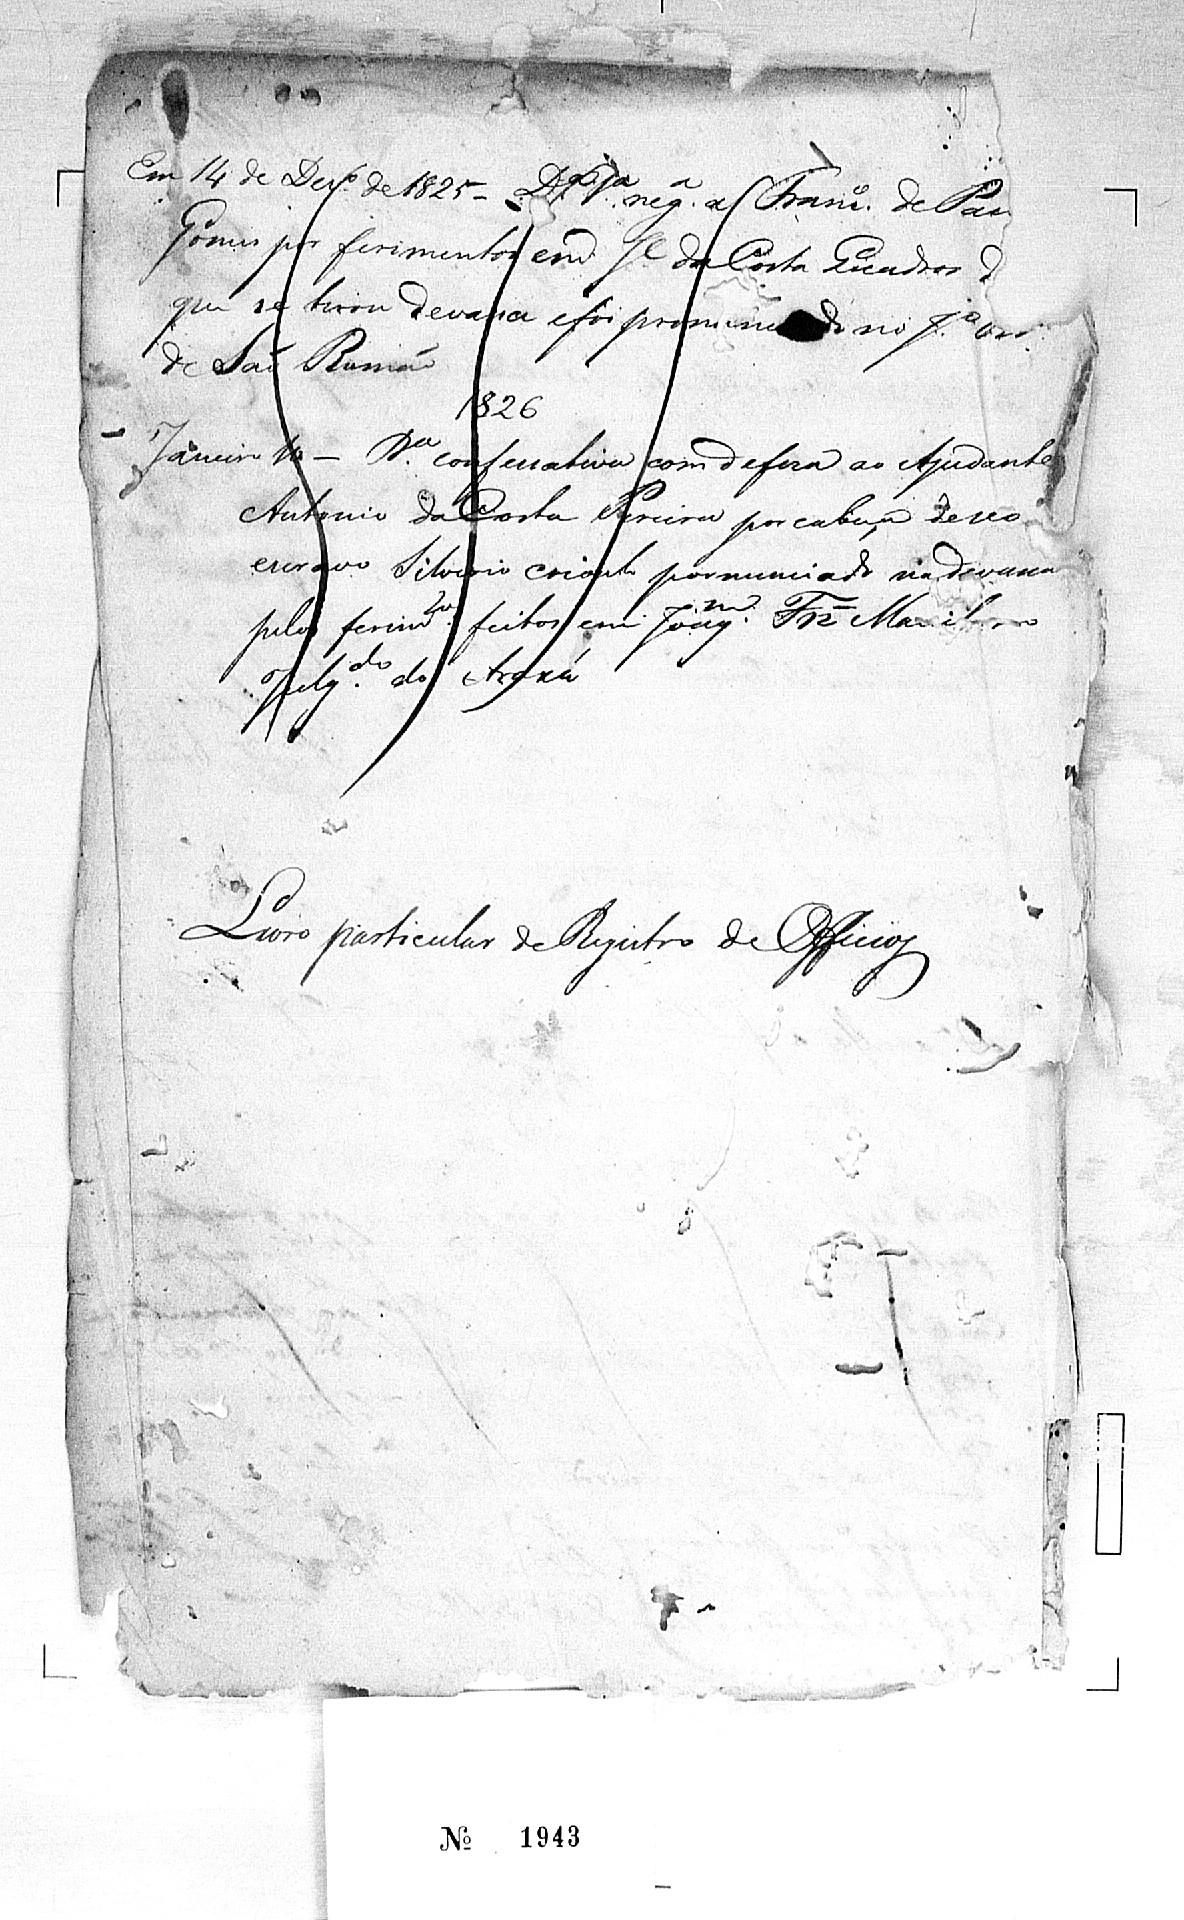 Em 14 de Dezº de 1825 - neg.ª a Franº. de Pau
Gomes por ferimentos em Jᵉ da Costa Quadros d
que se tirou devassa e foi pronunciado no J.º Or
de Saõ Romaõ
1826
Janeiro 10 - P.ᵃ confessativa com defeza ao Ajudante
Antonio da Costa Pereira por cabeça de seo
escravo Silverio crioulo pornunciado na devassa
pelos ferimᵗᵒˢ feitos em Joaqᵐ. Frz
Julg.ᵈᵒ do Araxá
Livro particular de Registro de Officios
Nº 1943